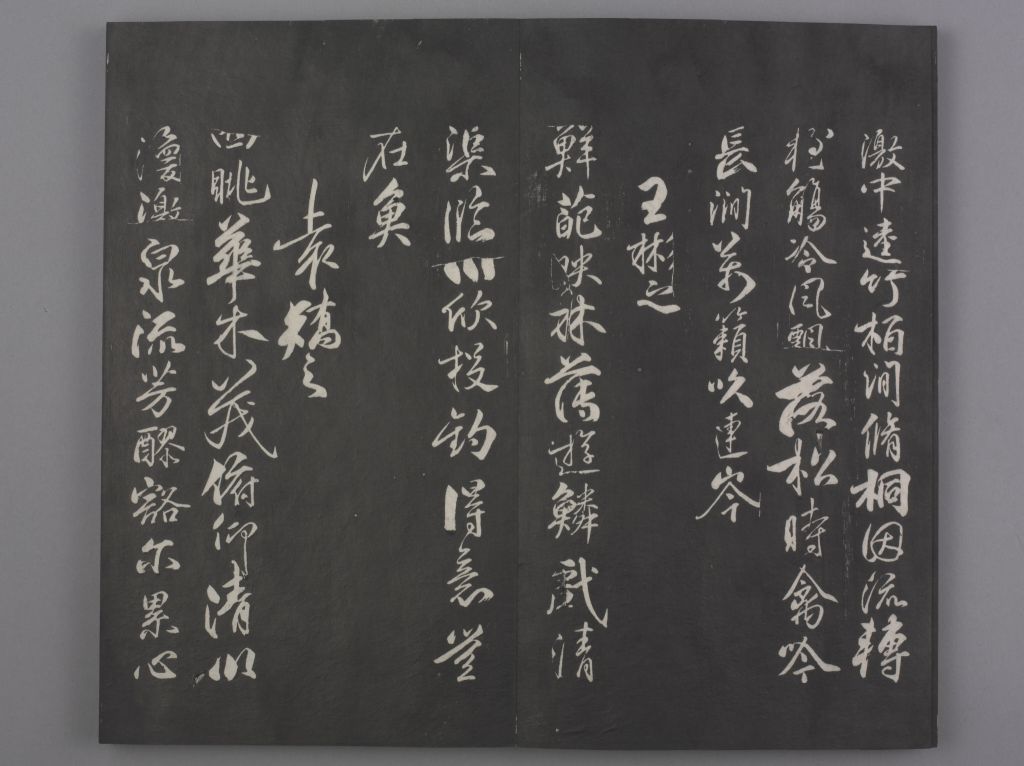 激中逵竹柏澗脩桐因流轉
輕觴冷風飄落松時禽吟
長澗萬籟吹連岑
王彬之
鮮葩映林薄遊鱗戲清
渠臨川欣投釣得意豈
在魚
袁矯之
四眺華木茂俯仰清川
渙激泉流芳醪豁尒累心